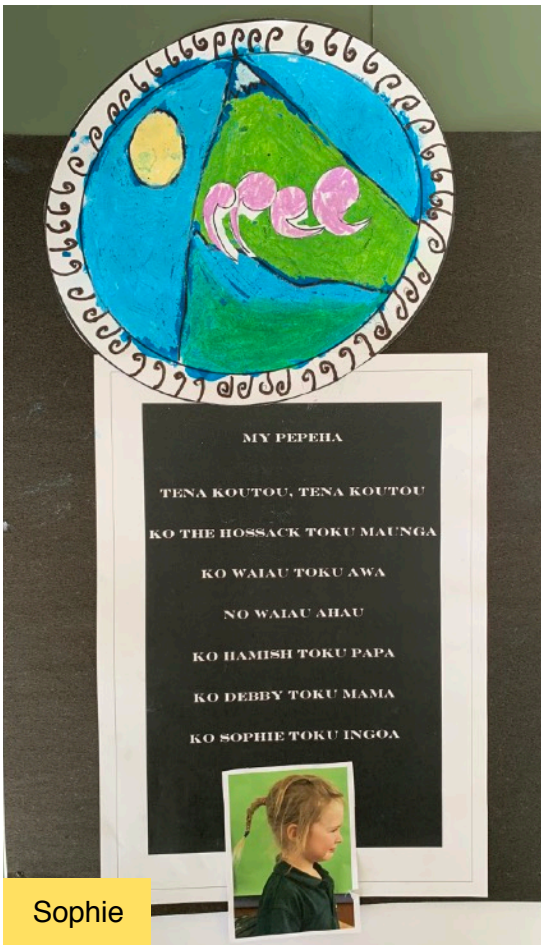 MY PEPEHA
TENA KOUTOU, TENA KOUTOU
KO THE HOSSACK TOKU MAUNGA
KO WAIAU TOKU AWA
NO WAIAU AHAU
KO HAMISH TOKU PAPA
KO DEBBY TOKU MAMA
KO SOPHIE TOKU INGOA
Sophie